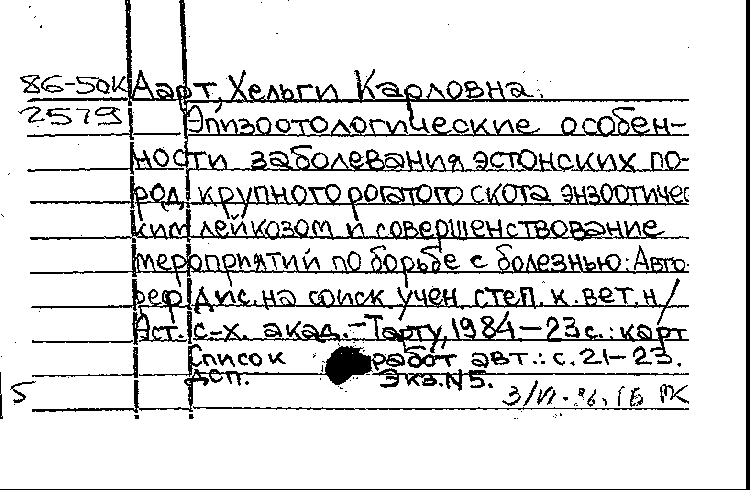 86-50К Аарт, Хельги Карловна.
2579 Эпизоотологические особен-
ности заболевания эстонских по-
род крупного рогатого скота энзоотичес
ким лейкозом и совершенствование
мероприятий по борьбе с болезнью: Авто-
реф. дис. на соиск учен. степ. к. вет. н/
Эст. с-х. акад.-Тарту, 1984-23с.: карт
Список работ авт.: с. 21-23.
ДСП. Экз. N5.
5